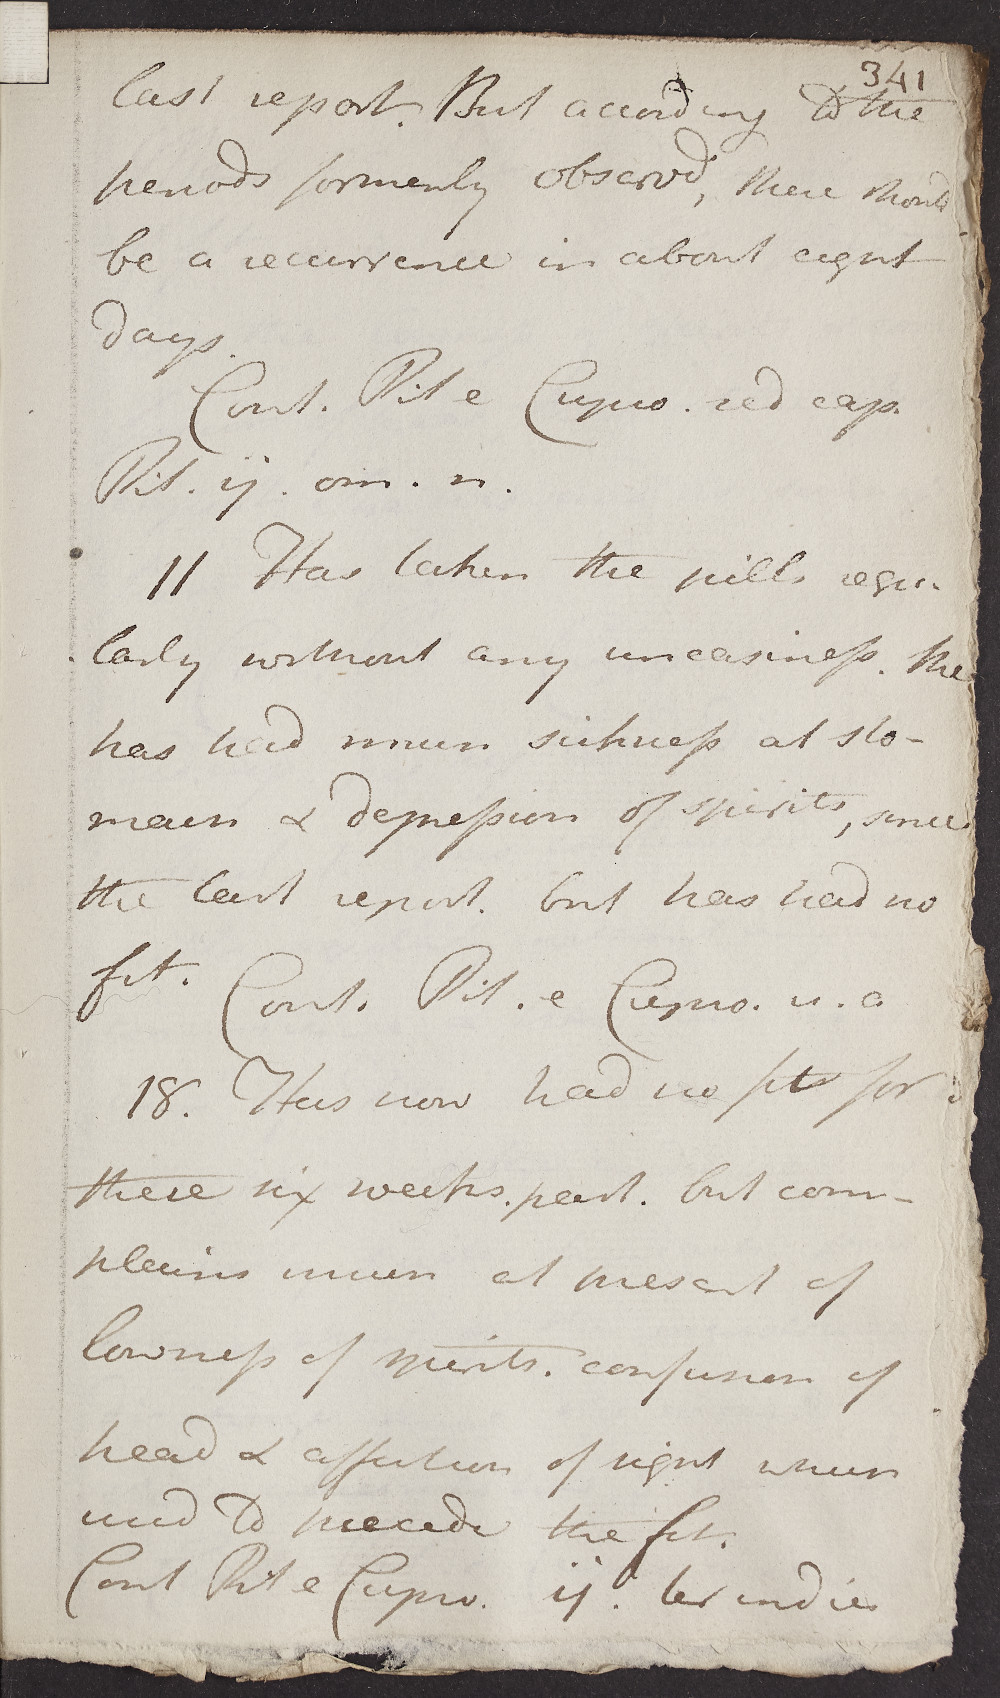 341
last report. But according to the
periods formerly observd, there should
be a recurrence in about eight
days.
Cont. Pil e Cupro. red cap.
Pil. ij. om. n.
11 Has taken the pills regu-
larly without any uneasiness. She
has had much sickness at sto-
mach & depression of spirits, since
the last report. but has had no
fit.
Cont. Pil. e Cupro. u. a
18. Has now had no fits for
these six weeks past. but com-
plains much at present of
lowness of spirits. confusion of
head & affection of sight which
used to precede the fit.
Cont Pil e Cupro. ij. ter indies